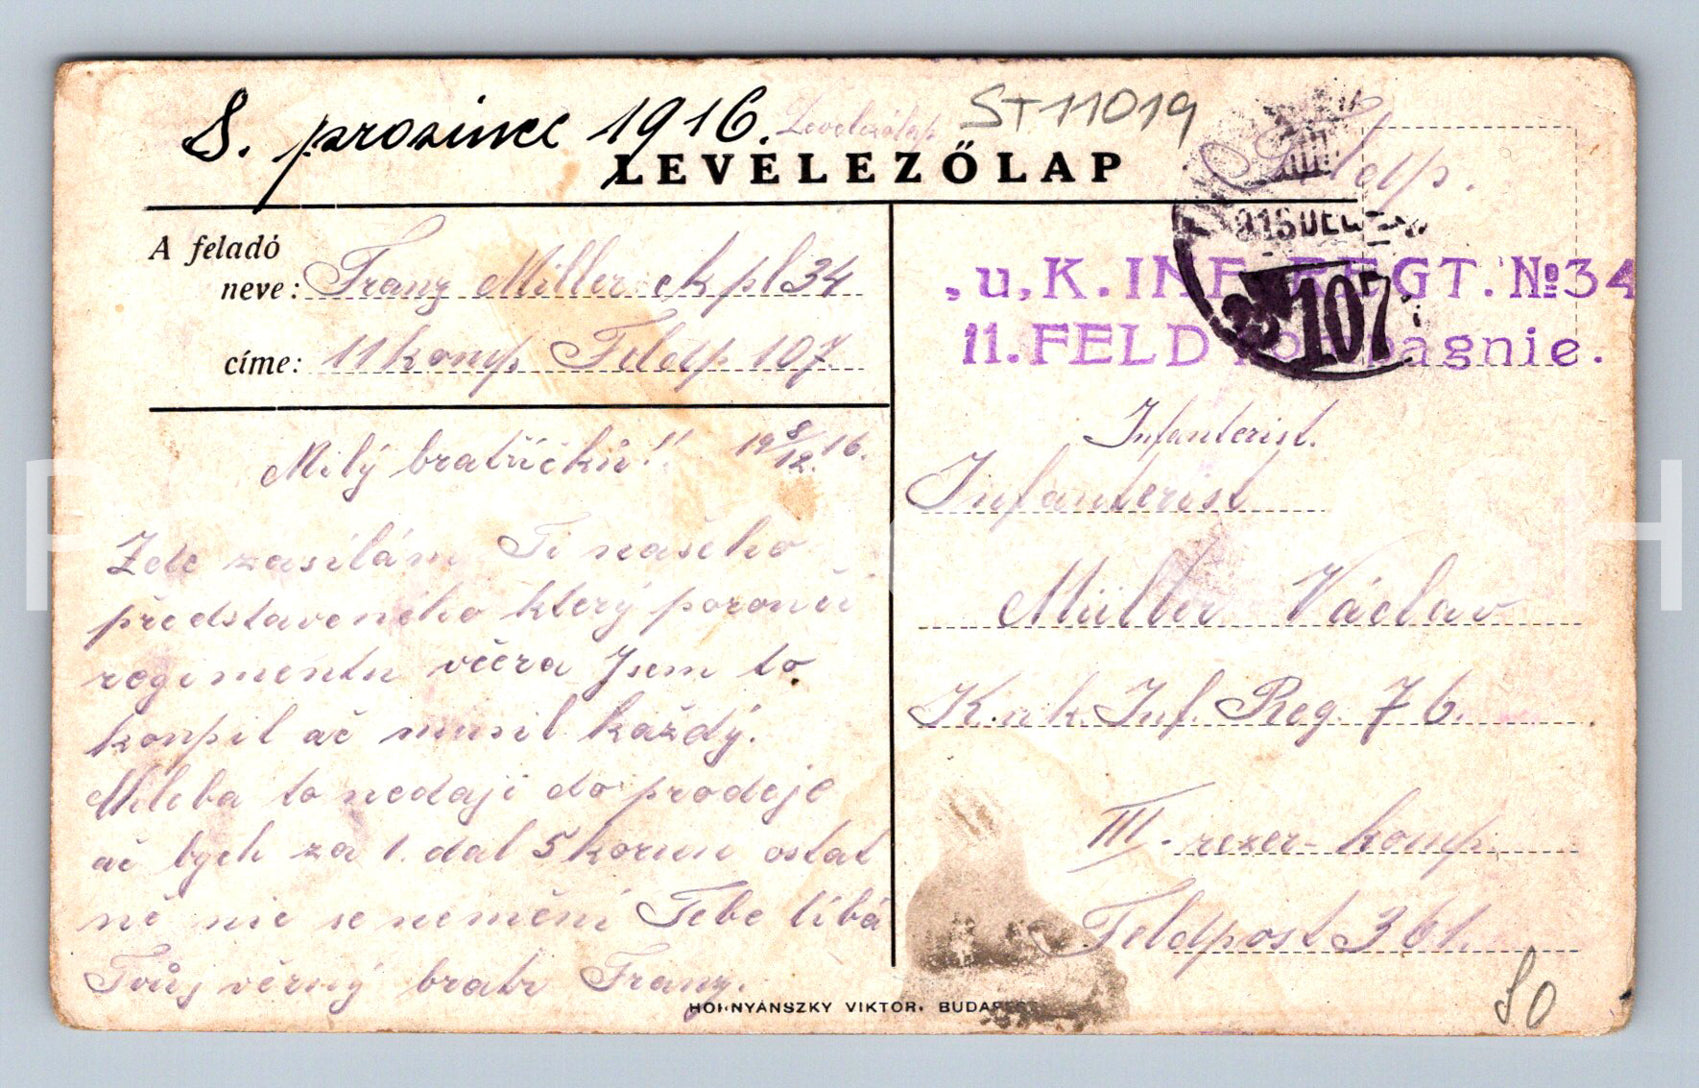 8. prosinec 1916.
Levelezőlap
ST11019
LEVELEZŐLAP
Feldp.
A feladó
neve: Franz Miller ck pl 34
címe: 11 komp Feldp 107.
916 DEC
107
u. K. INF. REGT. No 34
11. FELD Kompagnie.
Milý bratříčků!! 19 8/12. 16.
Zde zasílám Ti našeho
představeného který poroučí
regimentu včera Jsem to
koupil ač musil každý.
Mileba to nedají do prodeje
ač bych za 1. dal 5 korun ostat
ně nic se nemění Tebe líbá
Tvůj věrný bratr Franz.
Infanterist.
Infanterist
Müller Václav
K.u.k. Inf. Reg. 76.
III. rezer- komp.
Feldpost 361.
HORNYÁNSZKY VIKTOR, BUDAPEST
50